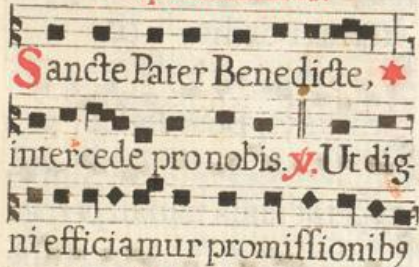 Sancte Pater Benedicte, *
intercede pro nobis. ℣. Ut dig
ni efficiamur promiſſionibꝰ